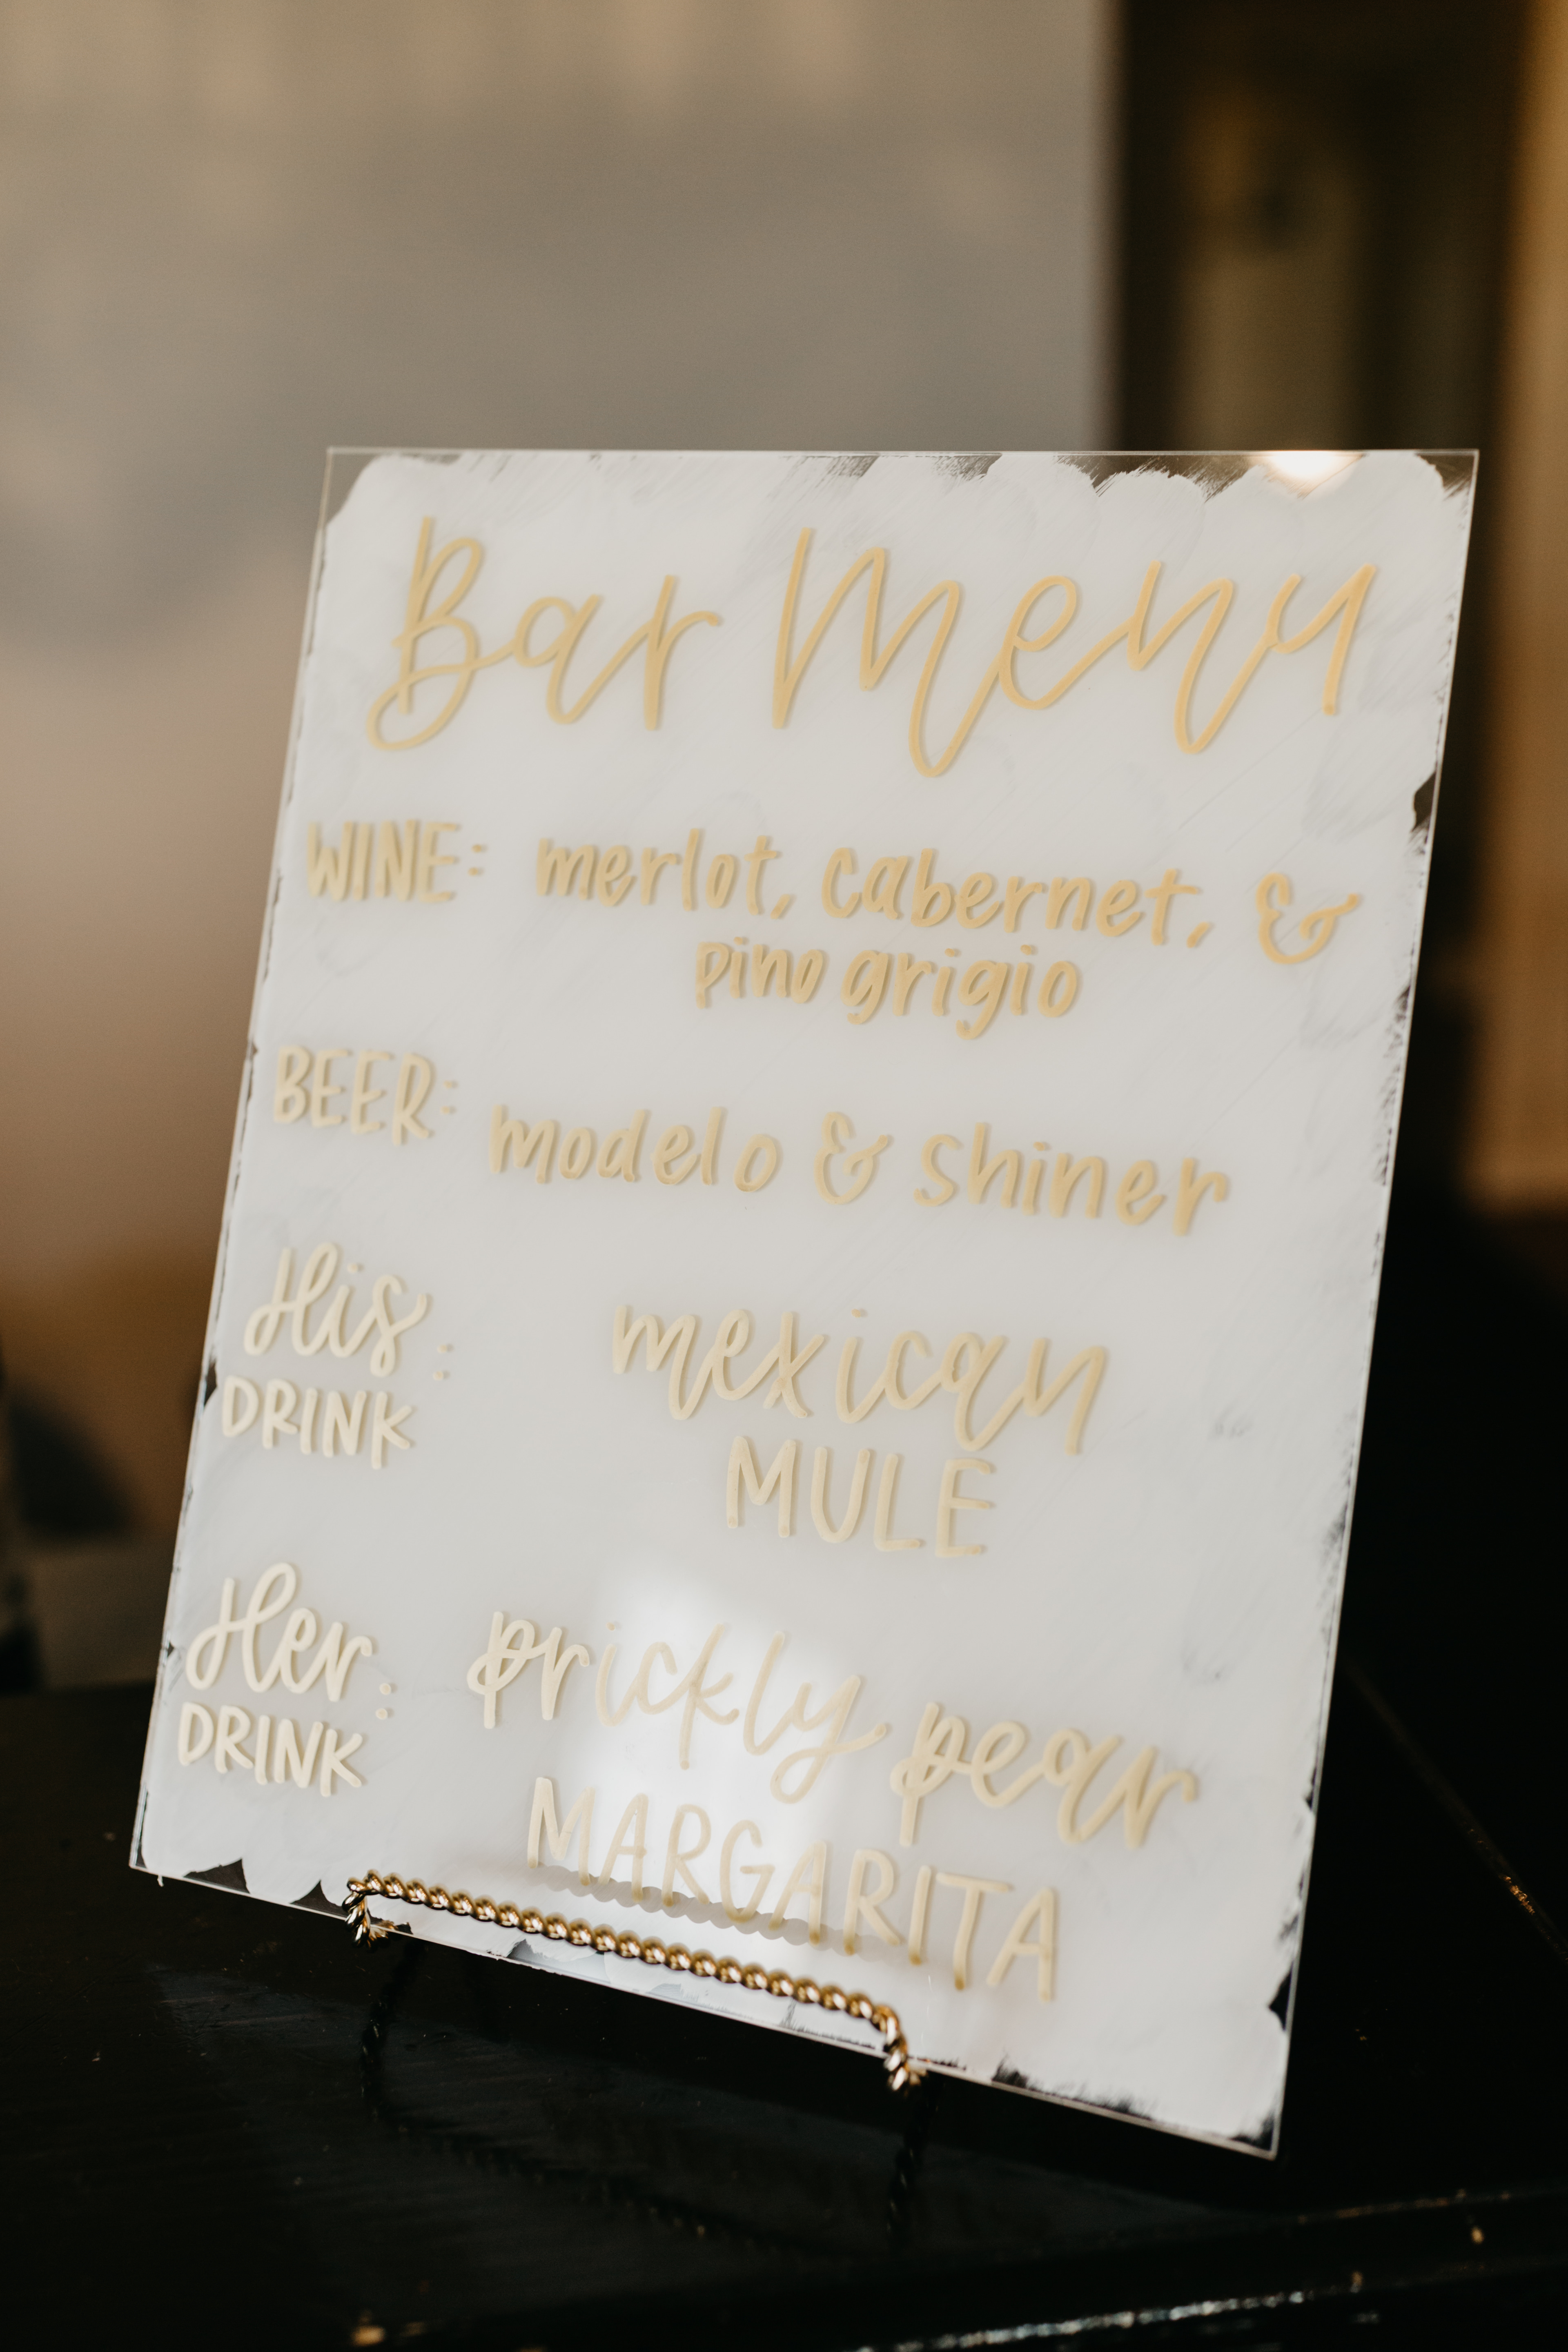 Bar Menu
WINE: merlot, cabernet, &
pino grigio
BEER: modelo & shiner
His: mexican
DRINK MULE
Her: prickly pear
DRINK MARGARITA